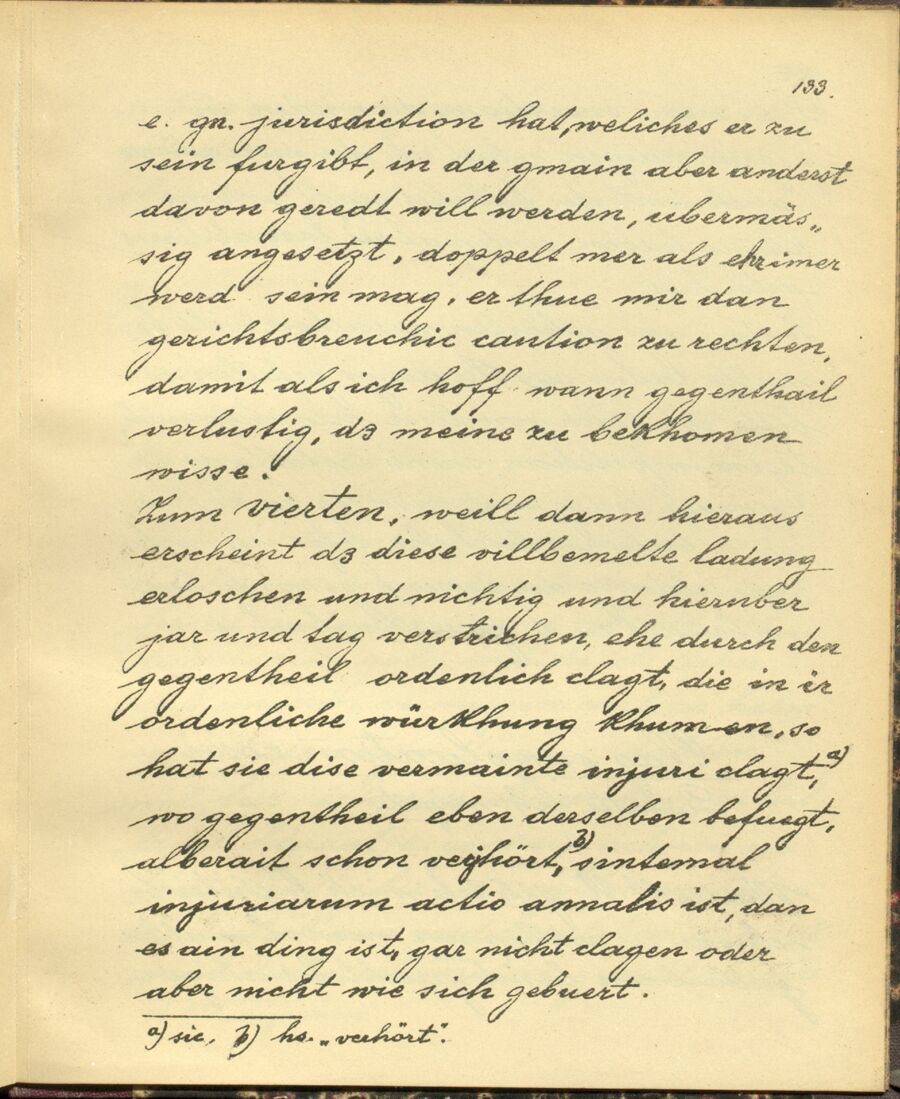 133.
e. gn. jurisdiction hat, weliches er zu
sein furgibt, in der gmain aber anderst
davon geredt will werden, ubermäs„
sig angesetzt, doppelt mer als
werd sein mag, er thue mir dan
gerichtsbreuchic caution zu rechten,
damit als ich hoff wann gegenthail
verlustig, dz meine zu bekhomen
wisse.
Zum vierten, weill dann hieraus
erscheint dz diese villbemelte ladung
erloschen und nichtig und hieruber
jar und tag verstrichen, ehe durch den
gegentheil ordenlich clagt, die in ir
ordenliche würkhung khumen, so
hat sie dise vermainte injuri clagt, a)
wo gegentheil eben derselben befuegt,
alberait schon vejhört, b) sintemal
injuriarum actio annalis ist, dan
es ain ding ist, gar nicht clagen oder
aber nicht wie sich gebuert.
a) sic, b) hs. „verhört".